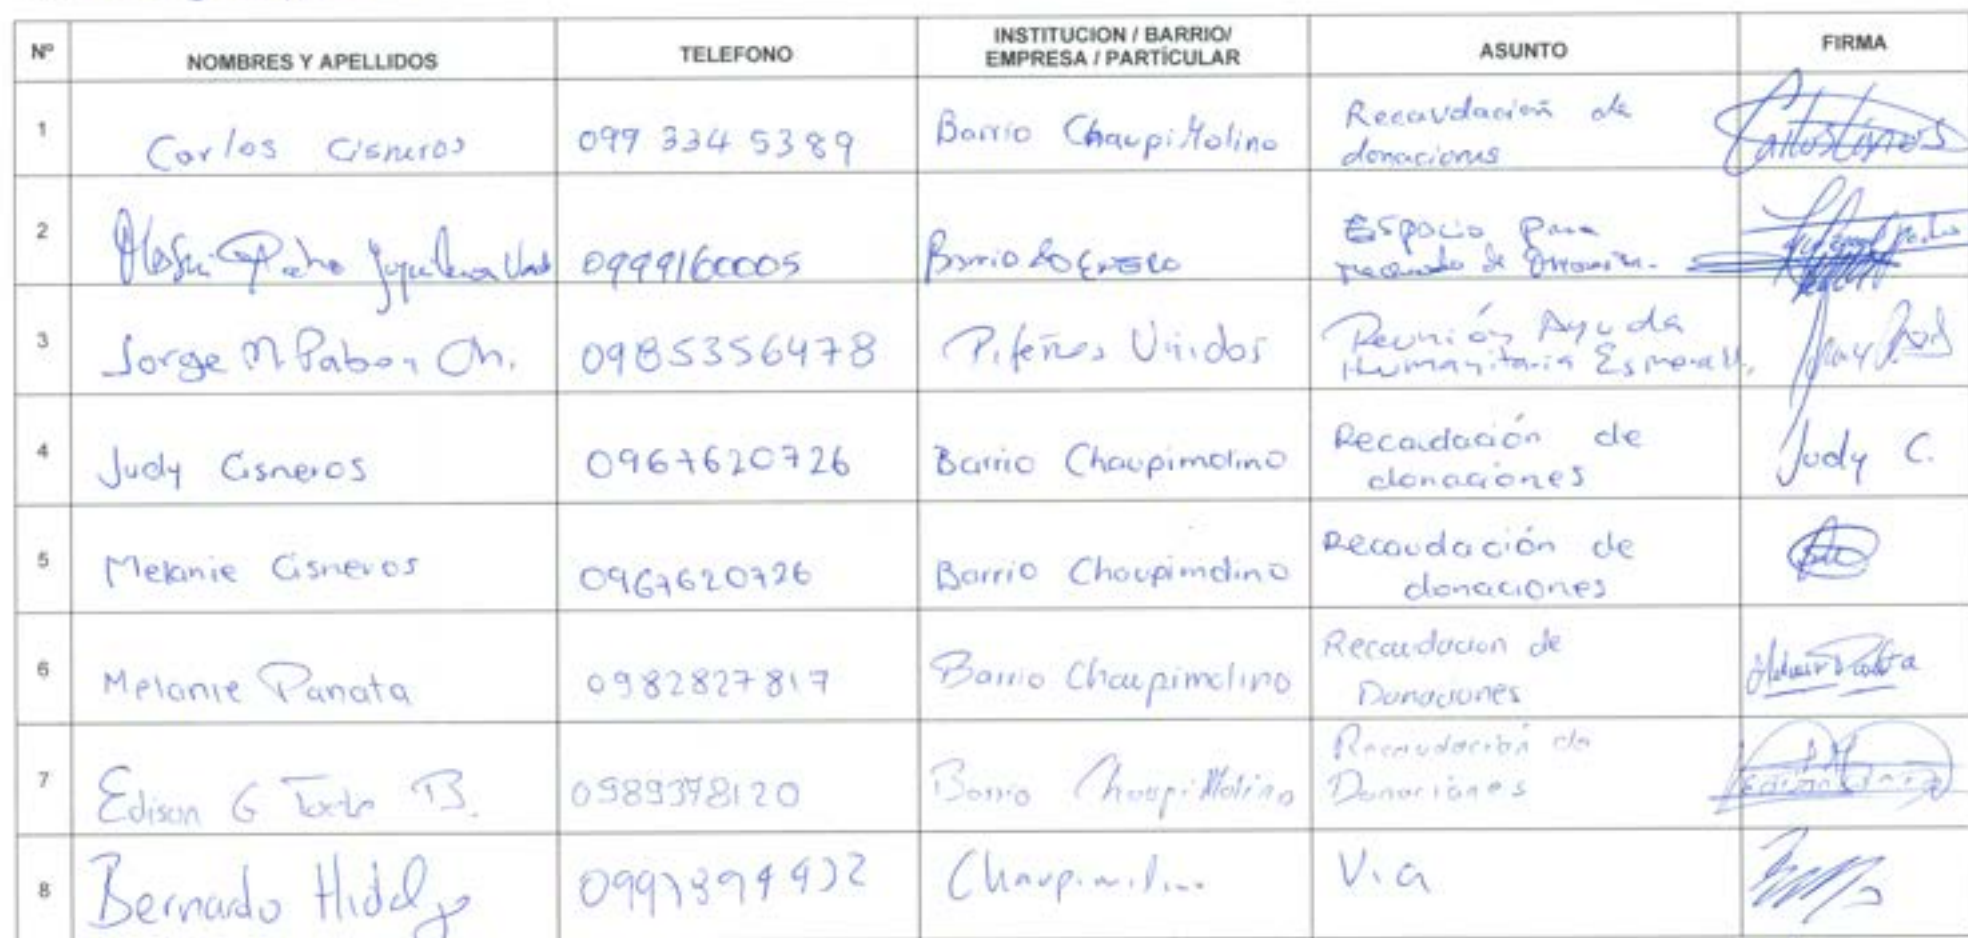 Nº NOMBRES Y APELLIDOS TELEFONO INSTITUCION / BARRIO/ EMPRESA / PARTÍCULAR ASUNTO FIRMA
1 Carlos Cisneros 099 334 5389 Barrio ChaupiMolino Recaudación de
donaciones
2 0999160005 Barrio Espacio para
de
3 Jorge M Pabon Ch. 0985356478 Pifeños Unidos Reunión Ayuda
Humanitaria Esmerald.
4 Judy Cisneros 0967620726 Barrio Chaupimolino Recaudación de Judy C.
donaciones
5 Melanie Cisneros 0967620726 Barrio Chaupimolino Recaudación de
donaciones
6 Melanie Panata 0982827817 Barrio Chaupimolino Recaudacion de
Donaciones
7 Edison G B. 0989378120 Barrio ChaupiMolino Recaudación de
Donaciones
8 Bernardo Hidalgo Chaupimolino Via